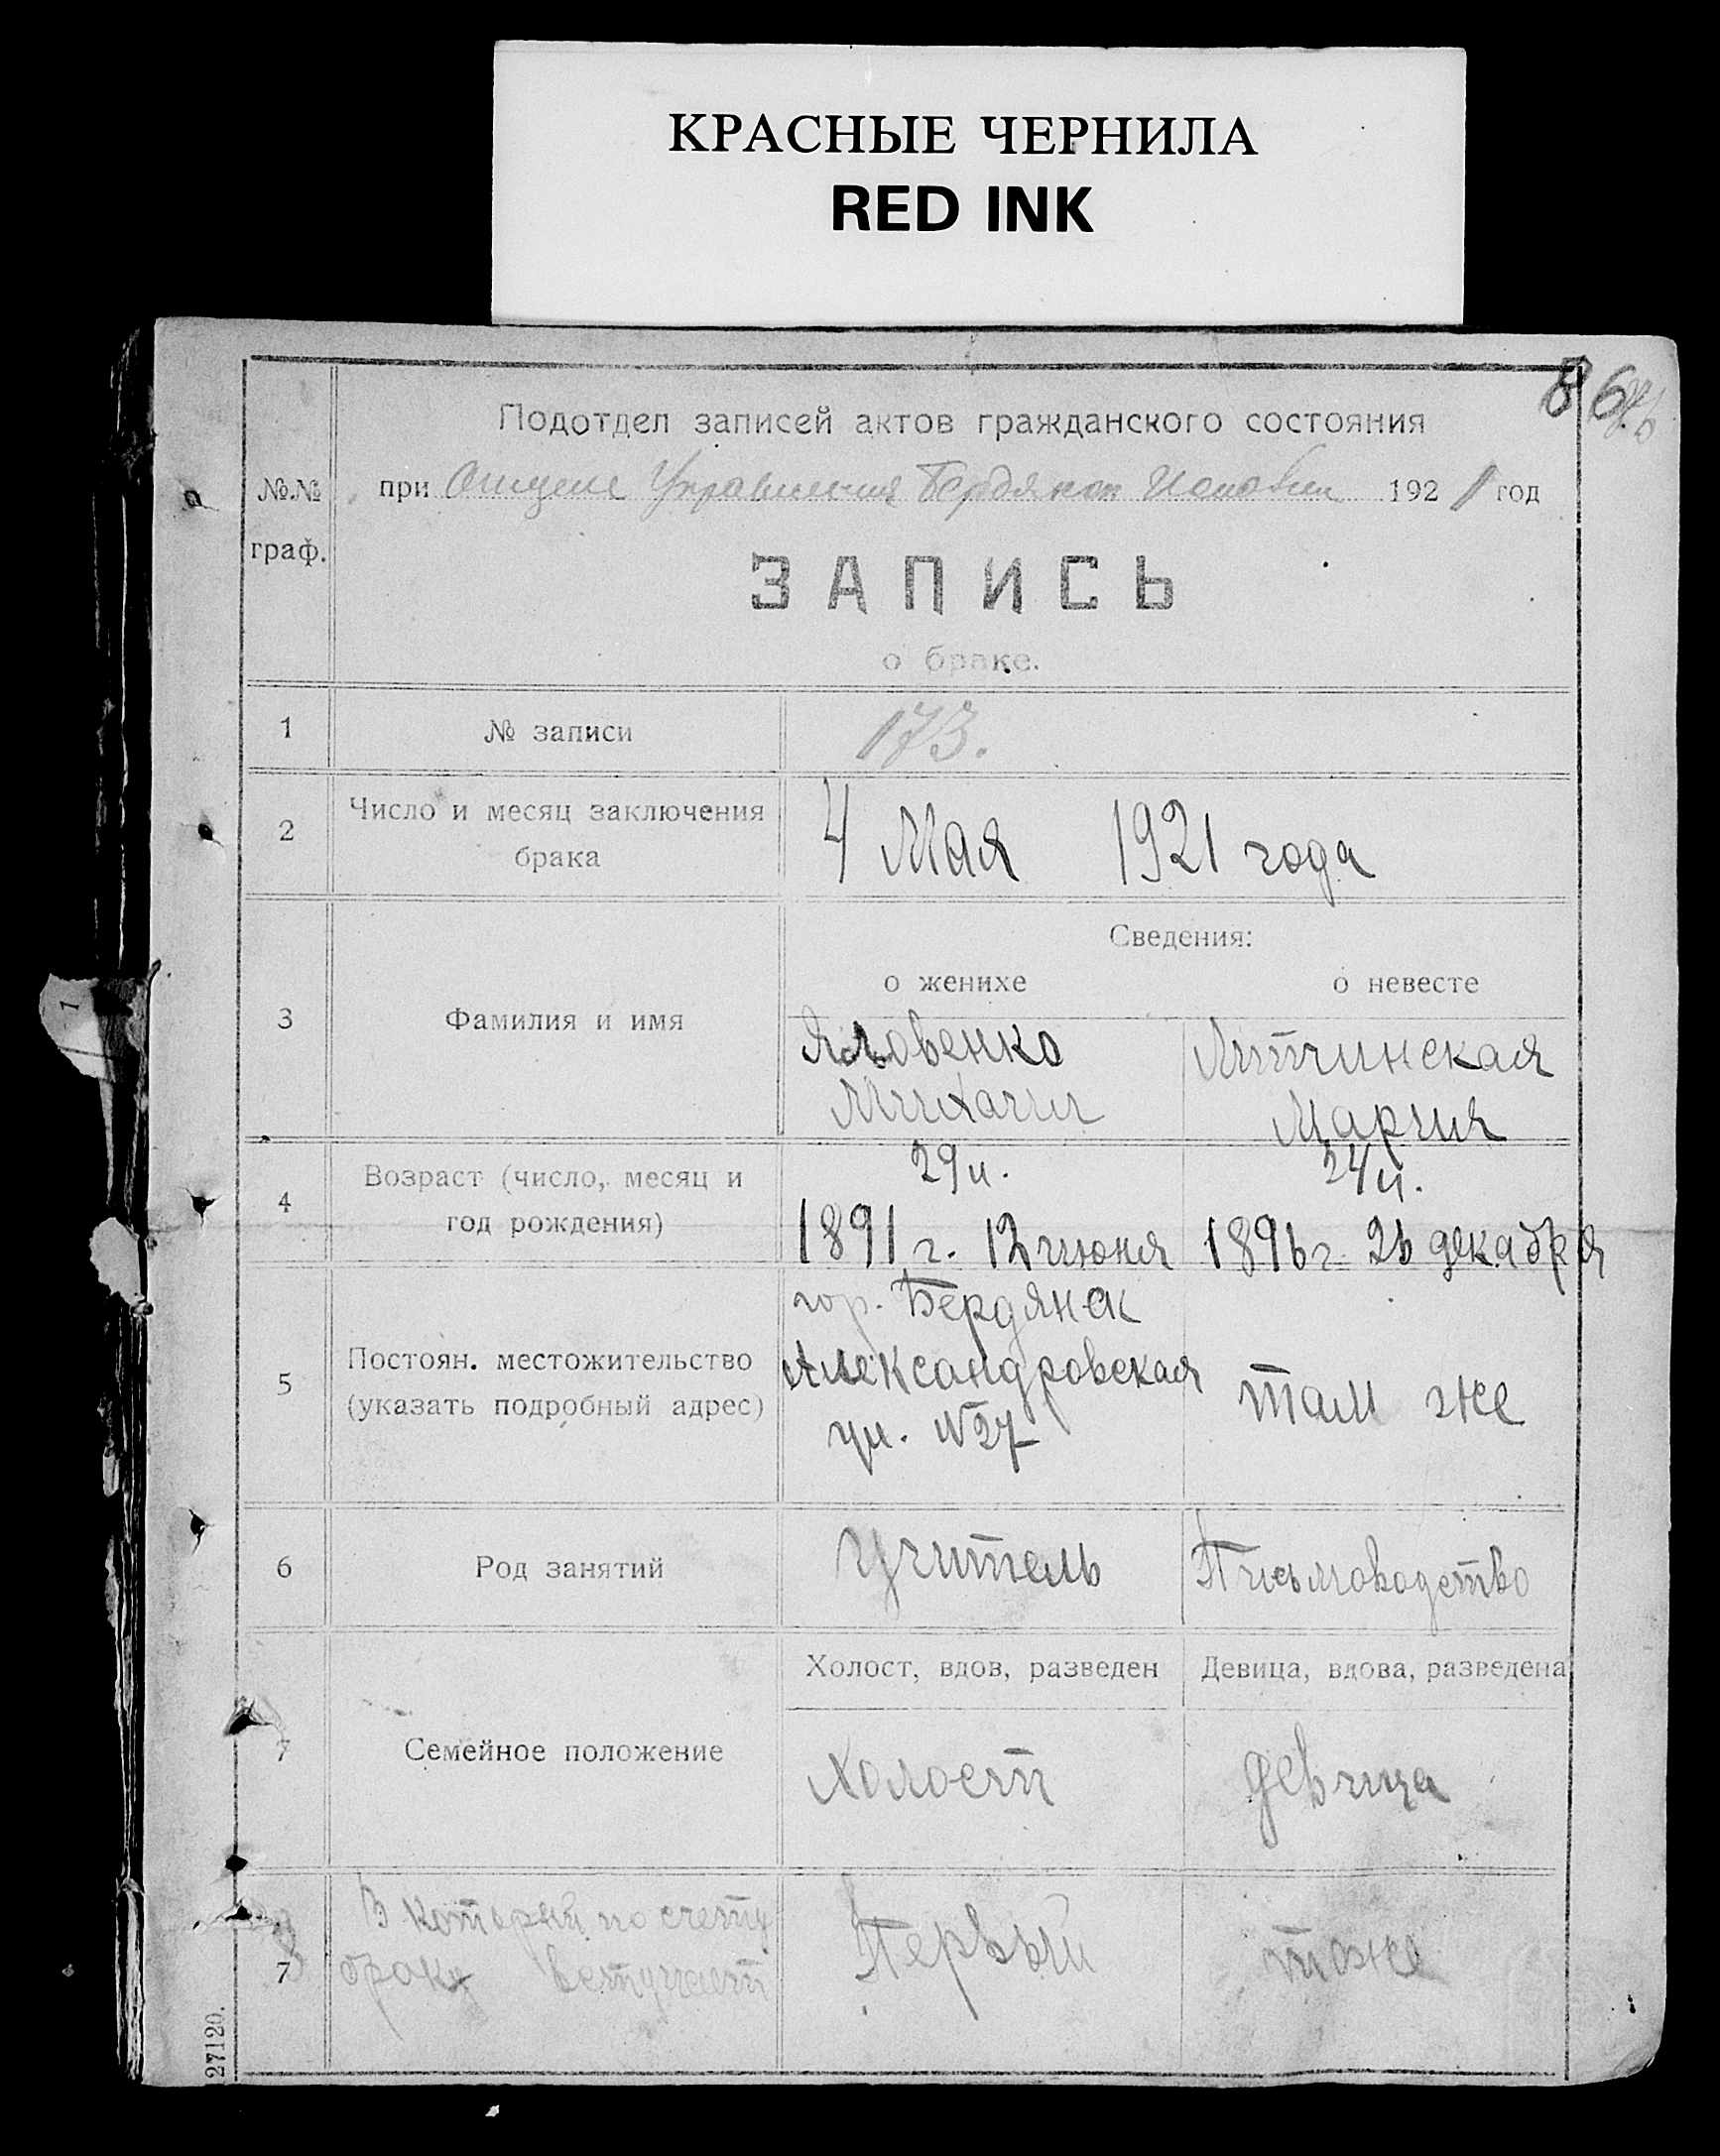 КРАСНЫЕ ЧЕРНИЛА
RED INK
86
Подотдел записей актов гражданского состояния
№№ граф.
при Отделе Управления Бердянск 1921 год
ЗАПИСЬ
о браке.
1 № записи 173.
2 Число и месяц заключения брака
4 Мая 1921 года
Сведения:
о женихе о невесте
3 Фамилия и имя
Яловенко
Михаил
Мария
4 Возраст (число, месяц и год рождения)
29 л. 24 л.
1891 г. 12 июня 1896 г. 26 декабря
5 Постоян. местожительство (указать подробный адрес)
гор. Бердянск
Александровская
ул. №27
там же
6 Род занятий
Учитель Письмоводство
Холост, вдов, разведен Девица, вдова, разведена
7 Семейное положение
Холост девица
7 В который по счету
брак вступает
Первый тоже
127120.